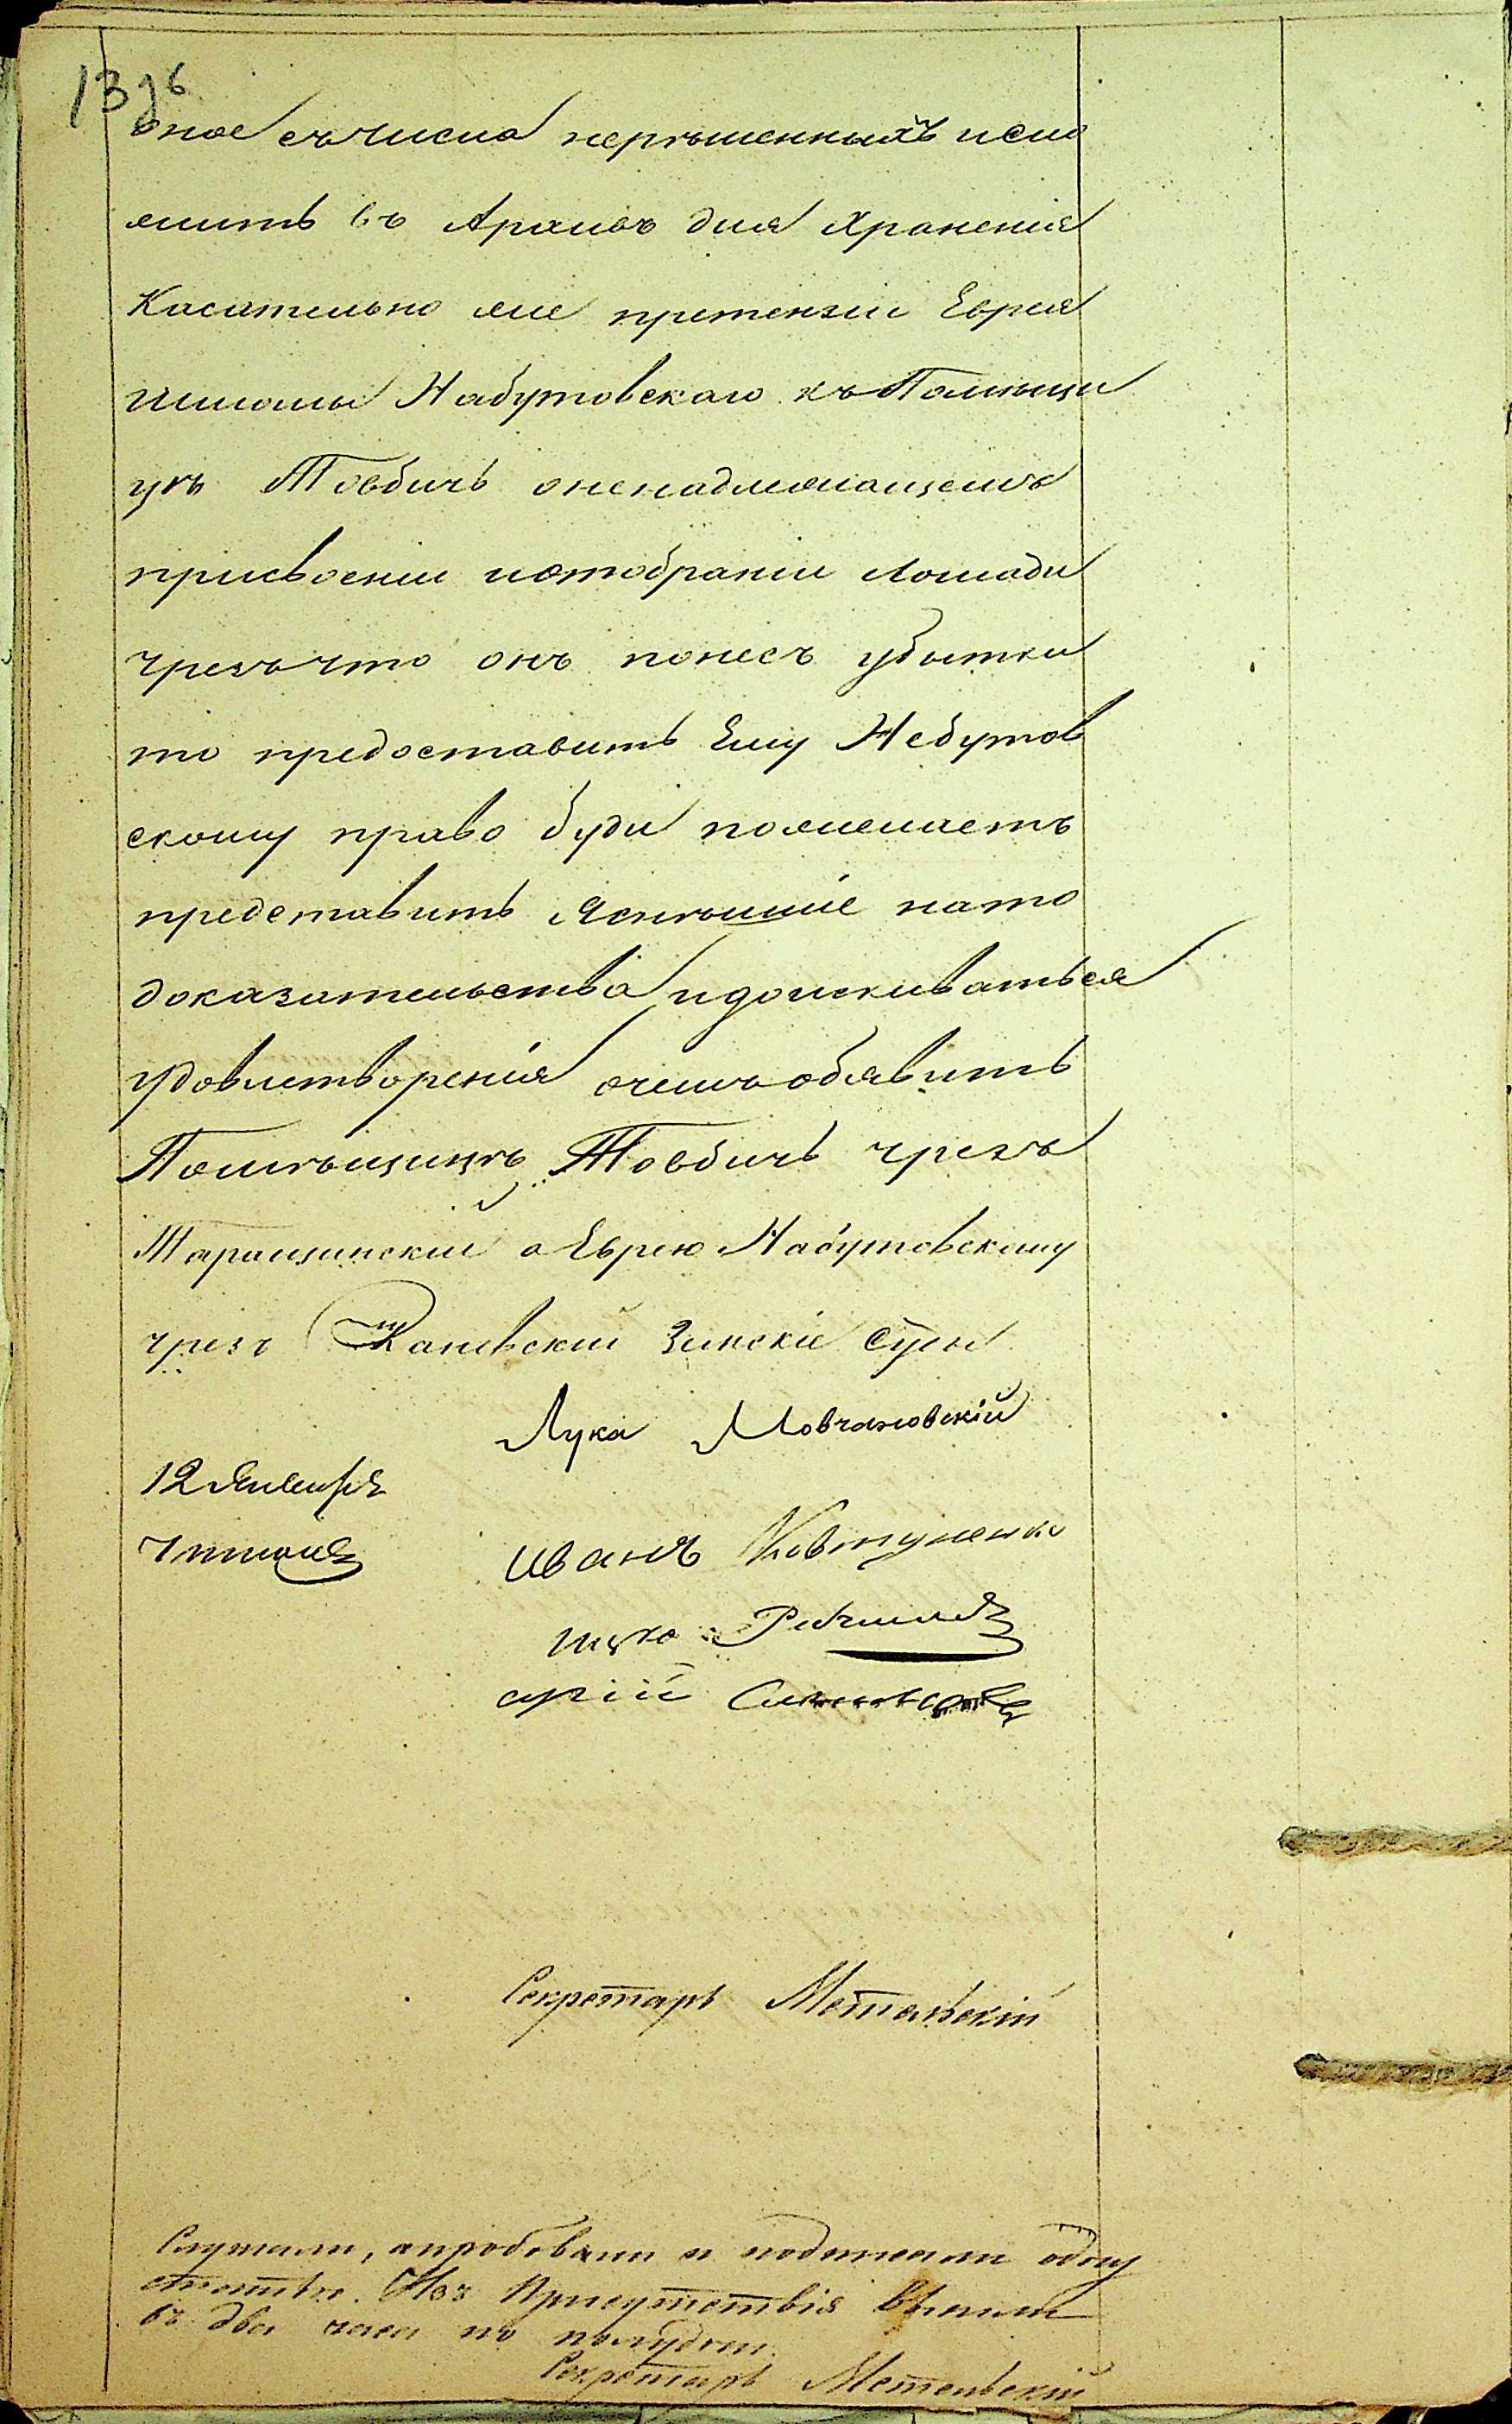 оное съ числа нерѣшенныхъ исло
жить въ Архивъ для Храненія
Касательно же претензіи Еврея
Шлиомы Набутовскаго къ Помѣщи
цѣ Товбичь о ненадлежащемъ
присвоеніи и отобраніи Лошади
чрезъ что онъ понесъ убытки
то предоставить Ему Небутов
скому право буди пожелаетъ
представить Яснѣишіе на то
доказательства и доискиваться
удовлетворенія о чемъ обявить
Помѣщицѣ Товбичь чрезъ
Таращинскій а Еврею Набутовскому
чрезъ Каневскій Земскіе Суды
Лука Мовчановскій
12 Января
Иванъ Ковтуненко
Секретарь Метельскій
Слушали, апробовали и подписали одну
статью. Изъ Присутствія вышли
въ два часа по полудни.
Секретарь Метельскій